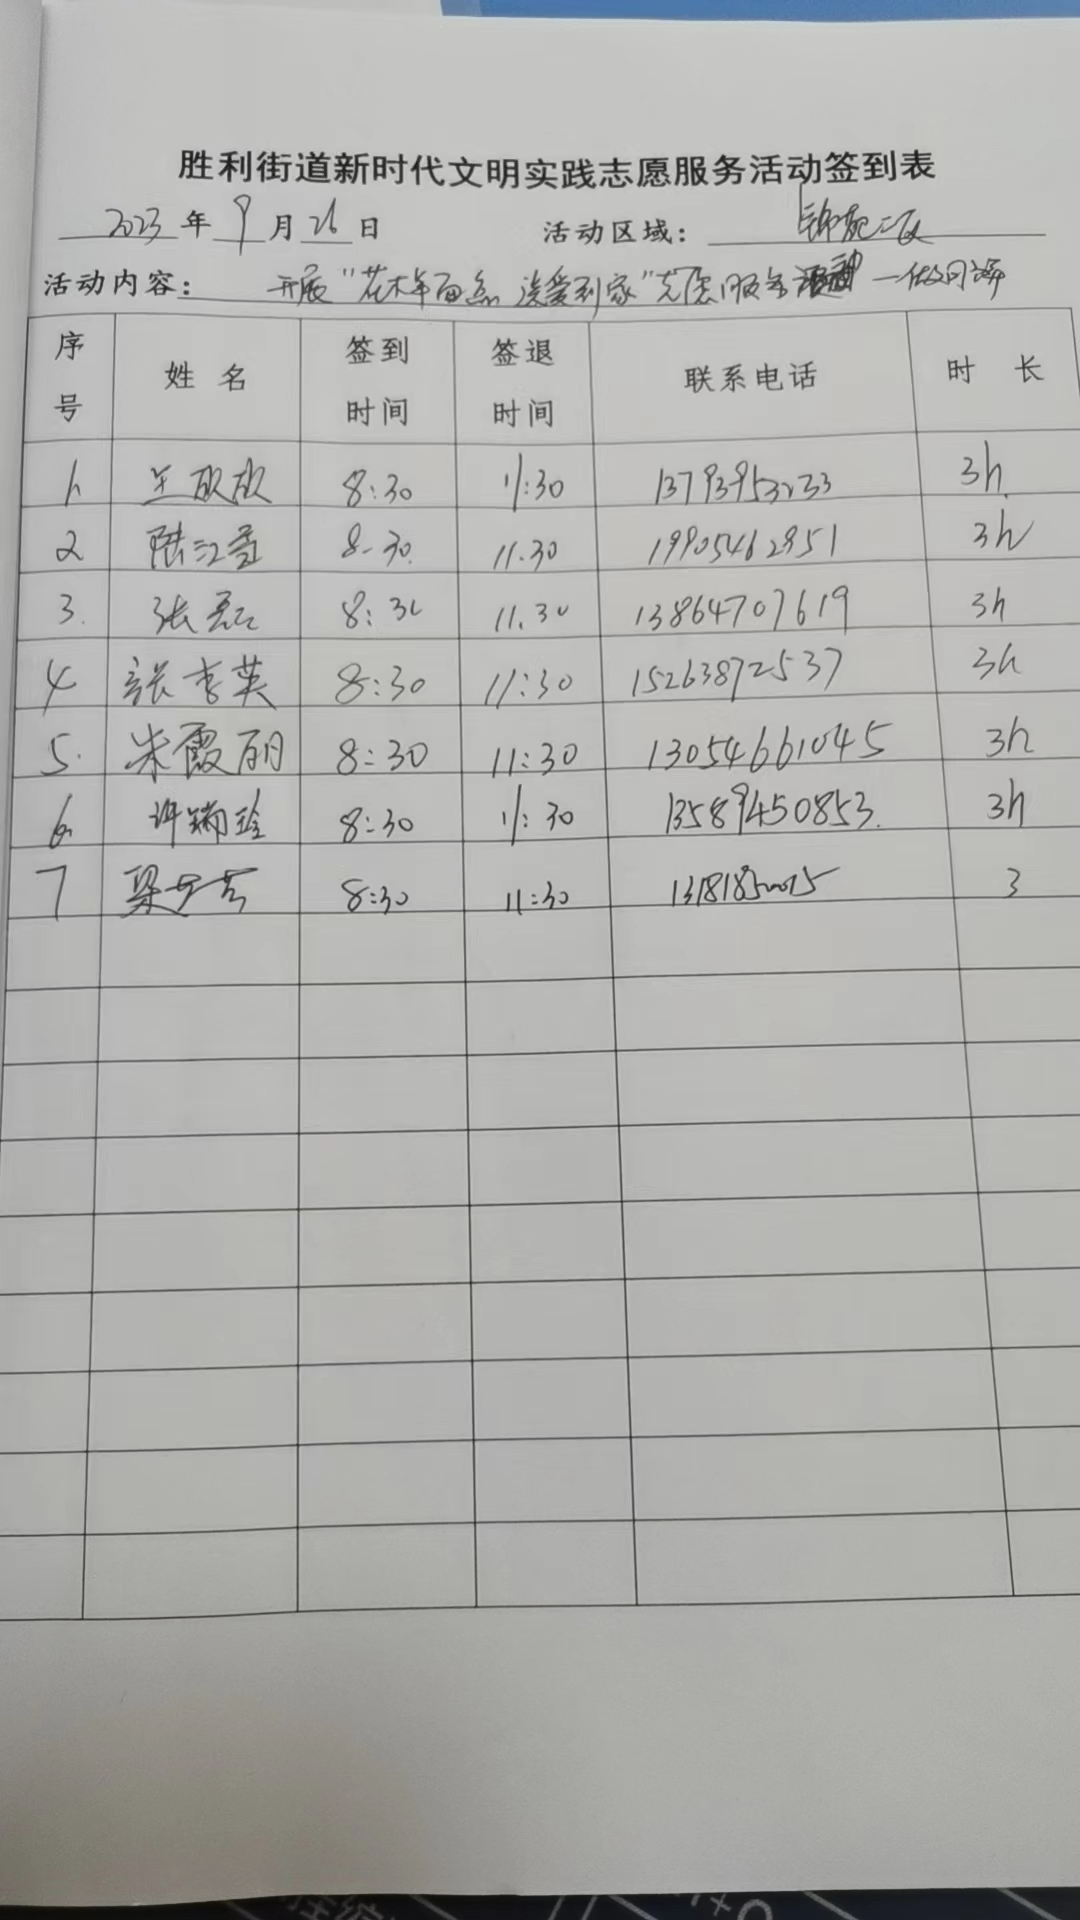 胜利街道新时代文明实践志愿服务活动签到表
2023年9月26日 活动区域：锦苑二区
活动内容：开展"花木年面点 送爱到家"志愿服务活动
序号 姓名 签到时间 签退时间 联系电话 时长
1. 8:30 11:30 13793953233 3h.
2 陆江雪 8-30. 11.30 19905462951 3h
3. 张磊 8:30 11.30 13864707619 3h
4 张孝英 8:30 11:30 15263872537 3h
5. 朱霞丽 8:30 11:30 13054661045 3h
6. 许瑞玲 8:30 11:30 13589450853. 3h
7 8:30 11:30 3